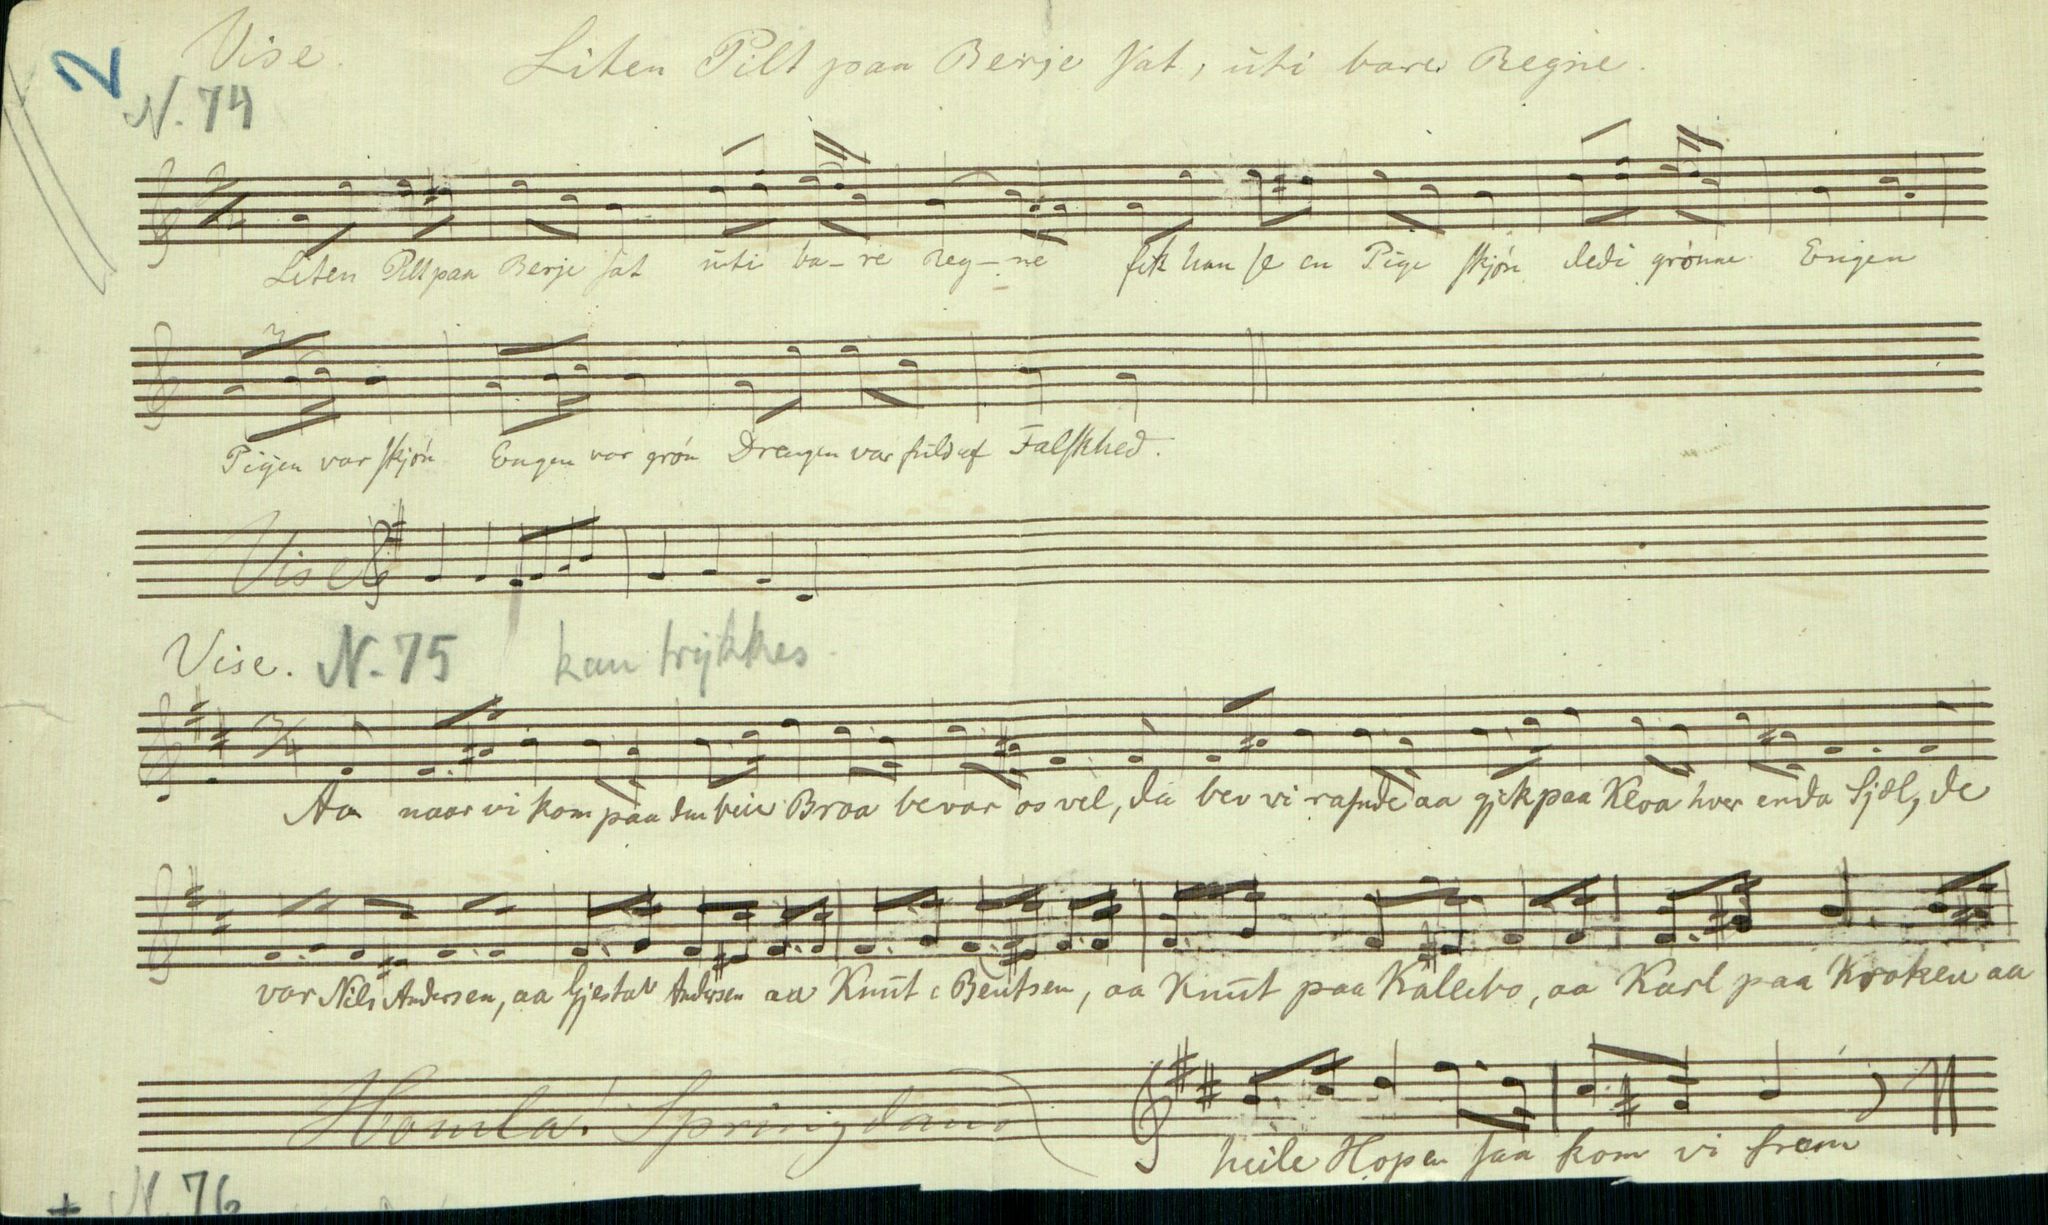 2
Vise. Liten Pilt paa Berje sat, uti bare Regne.
N. 74
2/4
Liten Pilt paa Berje sat uti ba-re Reg-ne fik han se en Pige skjøn de di grønne Engen
3
Pigen var skjøn Engen var grøn Drengen var fuld af Falskhed.
Vise
Vise. N. 75 kan trykkes.
3/4
Aa naar vi kom paa den Broa bevar os vel, da blev vi aa gjek paa Kloa hver enda Sjæl, de
var Nils Andersen, aa Gjestat Andersen aa Knut Bentsen, aa Knut paa Kallebo, aa Karl paa Kroken aa
Homla! Springdans
heile Hopen saa kom vi frem
+ N. 76